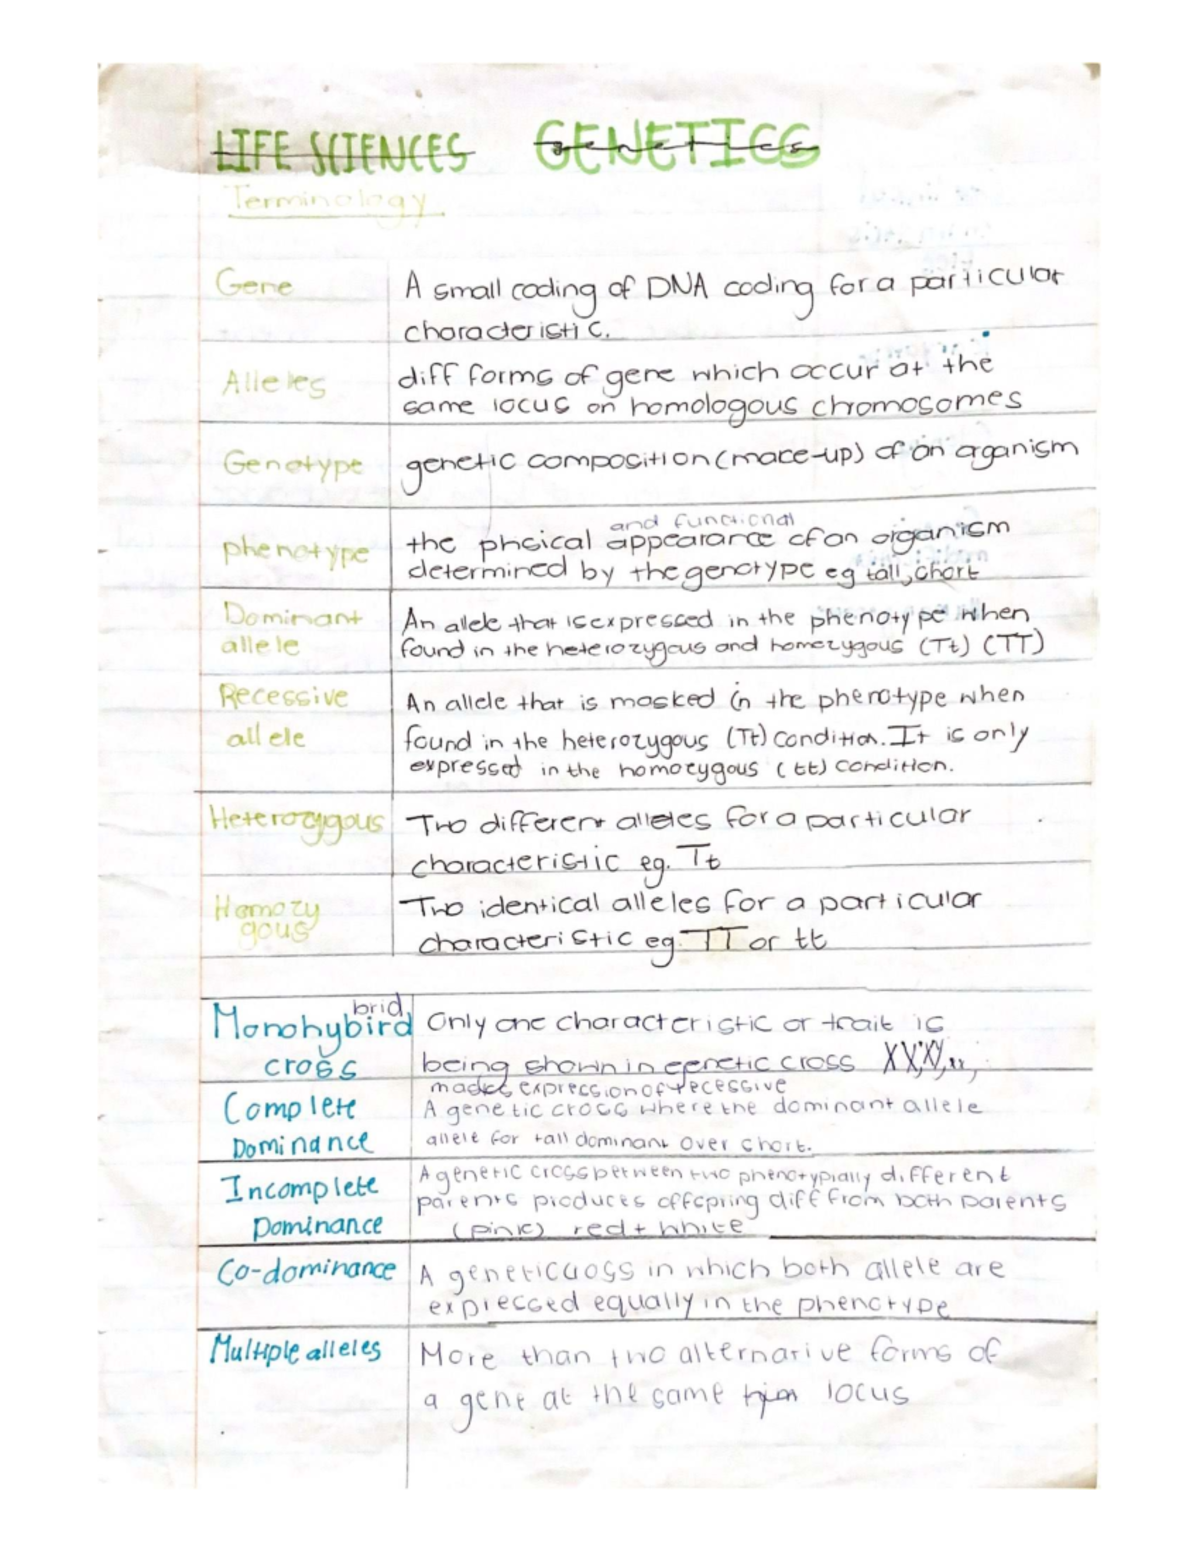 LIFE SCIENCES GENETICS
Terminology
Gene A small coding of DNA coding for a particular
characteristic.
Alleles diff forms of gene which occur at the
same locus on homologous chromosomes
Genotype genetic composition (make-up) of an organism
and functional
phenotype the phsical appearance of an organism
determined by the genotype eg tall, short
Dominant An allele that is expressed in the phenotype when
allele found in the heterozygous and homozygous (Tt) (TT)
Recessive An allele that is masked in the phenotype when
allele found in the heterozygous (Tt) condition. It is only
expressed in the homozygous (tt) condition.
Heterozygous Two different alleles for a particular
characteristic eg. Tt
Homozy Two identical alleles for a particular
gous characteristic eg. TT or tt
brid
Monohybird Only one characteristic or trait is
cross being shown in genetic cross
masks expression of recessive
Complete A genetic cross where the dominant allele
Dominance allele for tall dominant over short.
Incomplete A genetic cross between two phenotypially different
parents produces offspring diff from both parents
Dominance (pink) red + white
Co-dominance A genetic cross in which both allele are
expressed equally in the phenotype
Multiple alleles More than two alternative forms of
a gene at the same locus